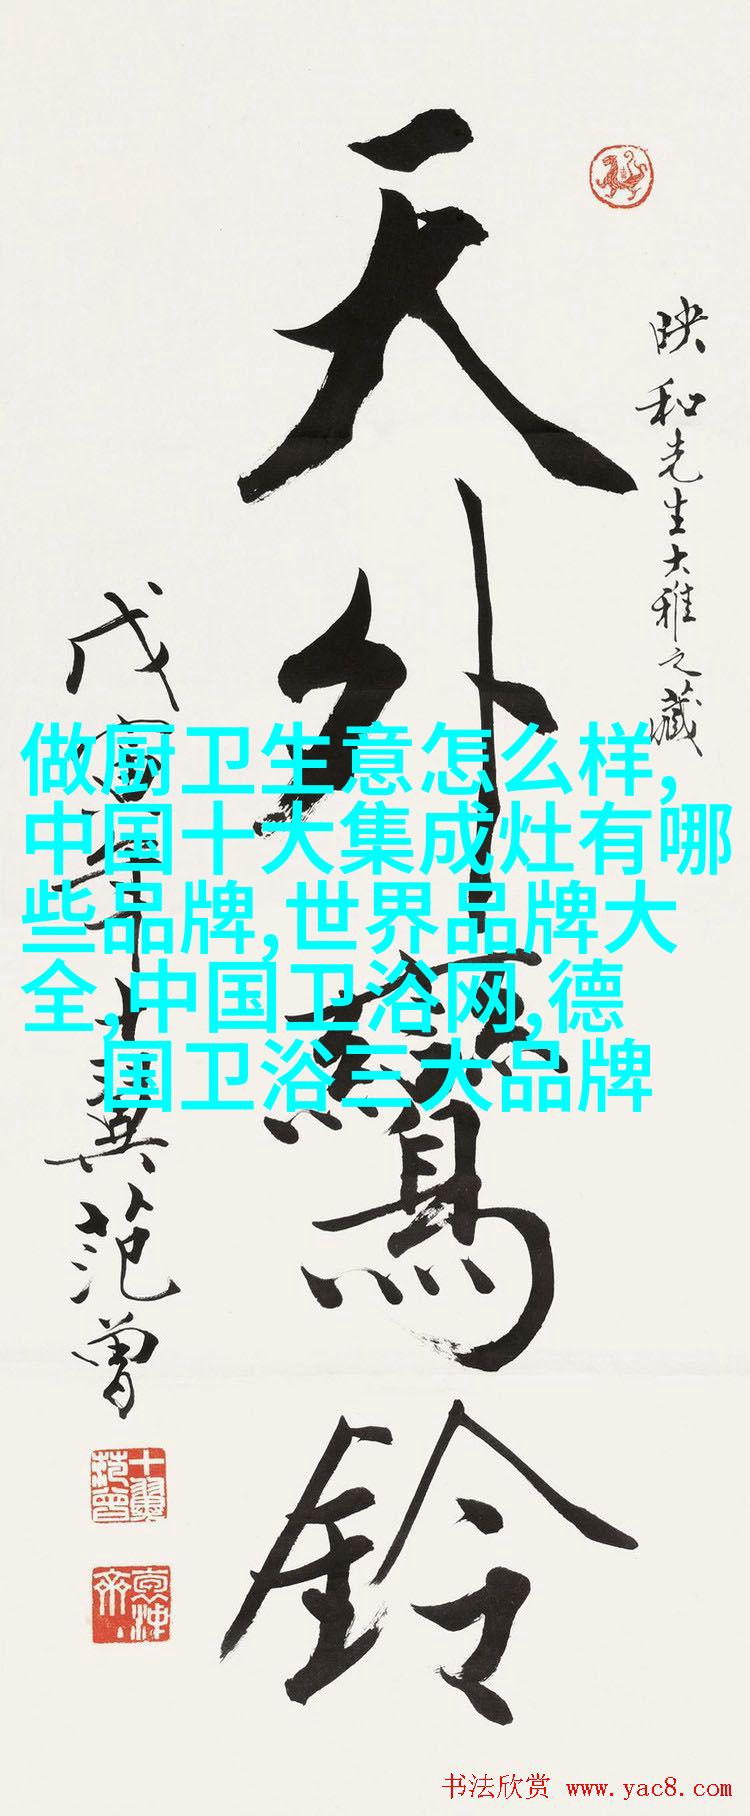 天外鸞鈴
映和先生大雅之藏
戊寅年十翼范曾
十翼范曾
做厨卫生意怎么样,
中国十大集成灶有哪
些品牌,世界品牌大
全,中国卫浴网,德
国卫浴三大品牌
书法欣赏 www.yac8.com